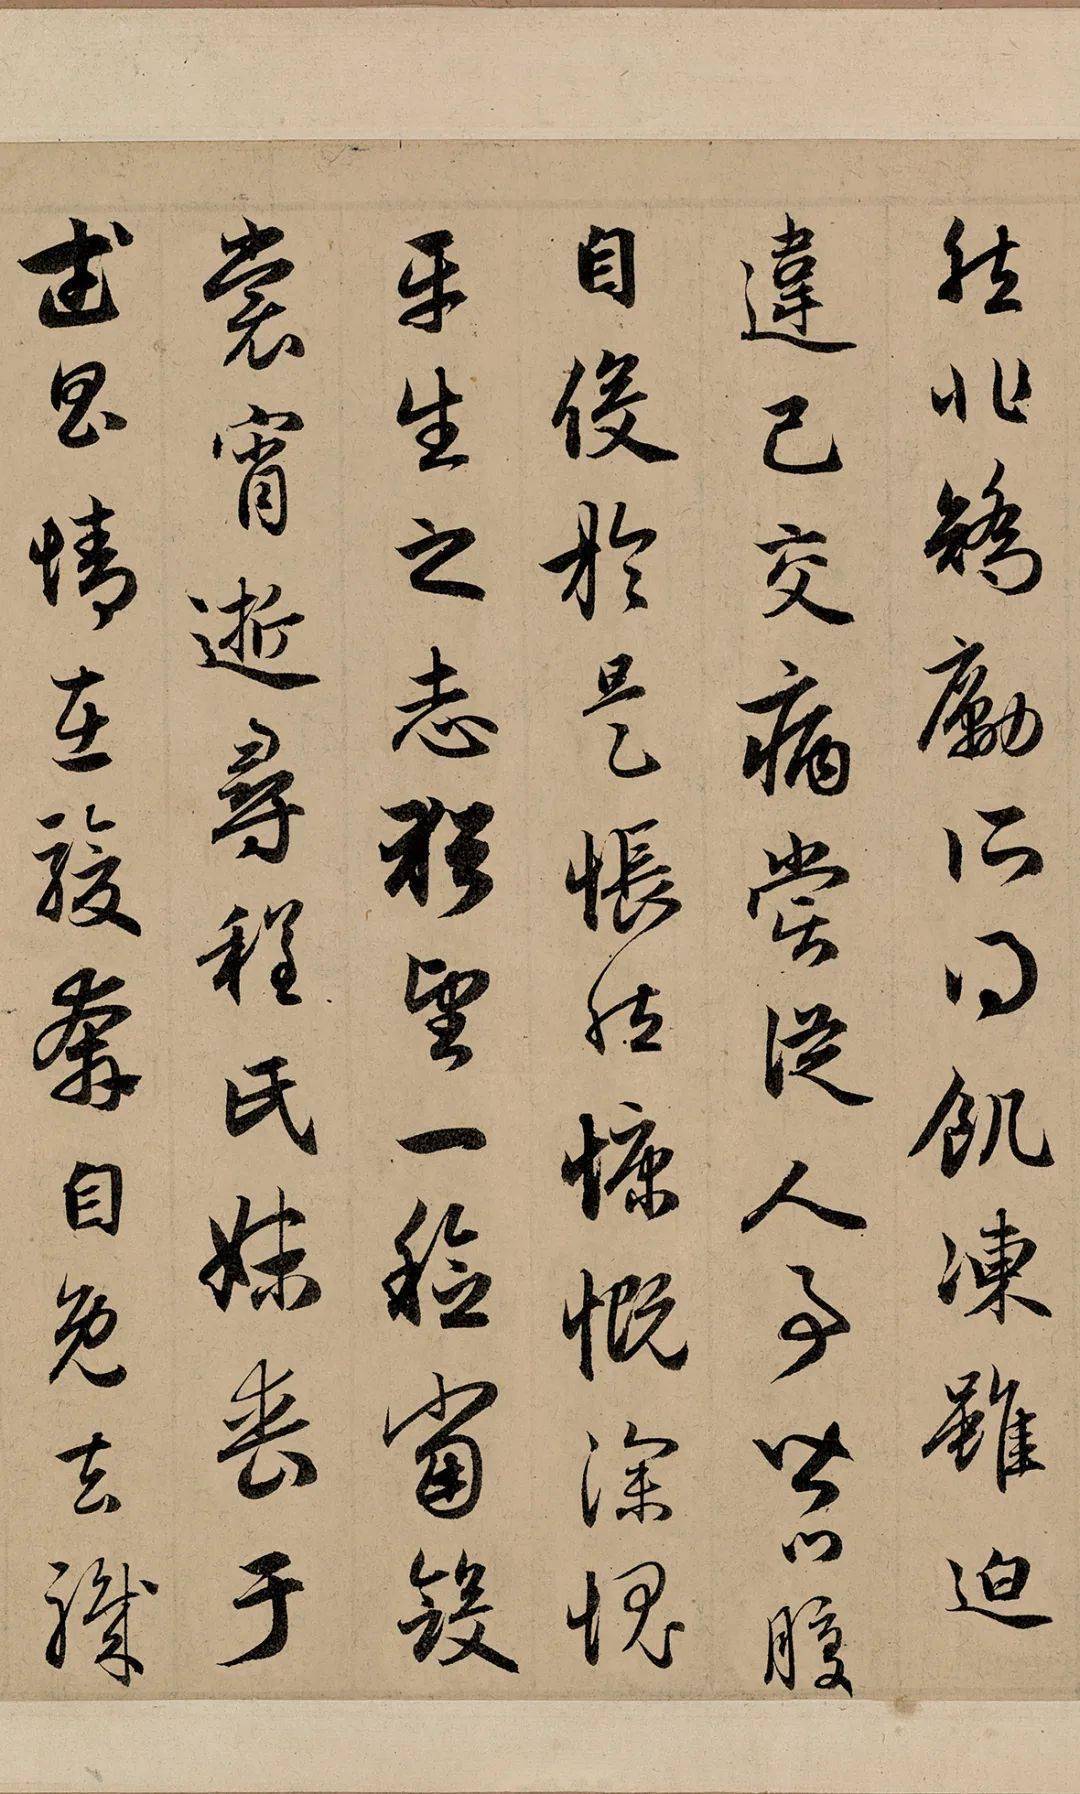 然非矯勵所得飢凍雖迫
違己交病嘗從人事皆口腹
自役於是悵然慷慨深愧
平生之志猶望一稔當斂
裳宵逝尋程氏妹喪于
武昌情在駿奔自免去職